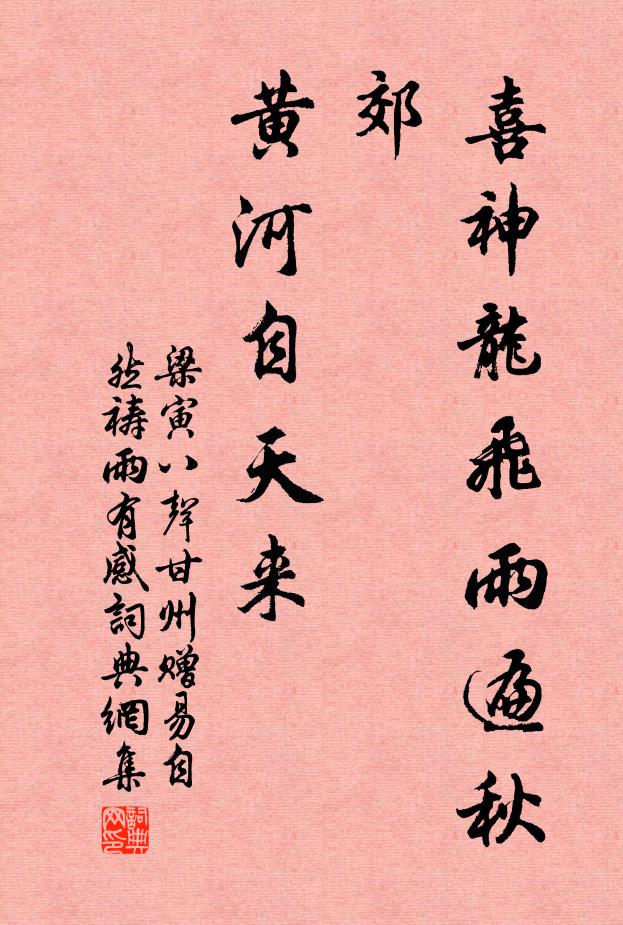 喜神龍飛雨遍秋
郊
黄河自天来
梁寅八聲甘州赠易自
然祷雨有感詞典網集
詞典网印